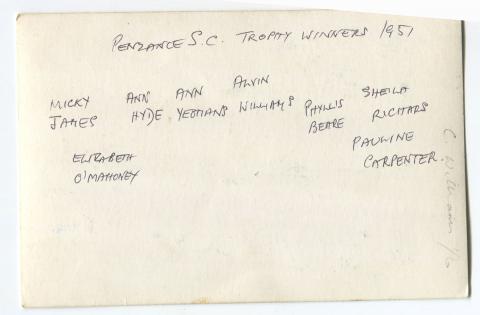 PENZANCE S.C. TROPHY WINNERS 1951
MICKY JAMES
ANN HYDE
ANN YEOMANS
ALVIN WILLIAMS
PHYLLIS BEARE
SHEILA RICHARDS
ELIZABETH O'MAHONEY
PAULINE CARPENTER
C. Williams